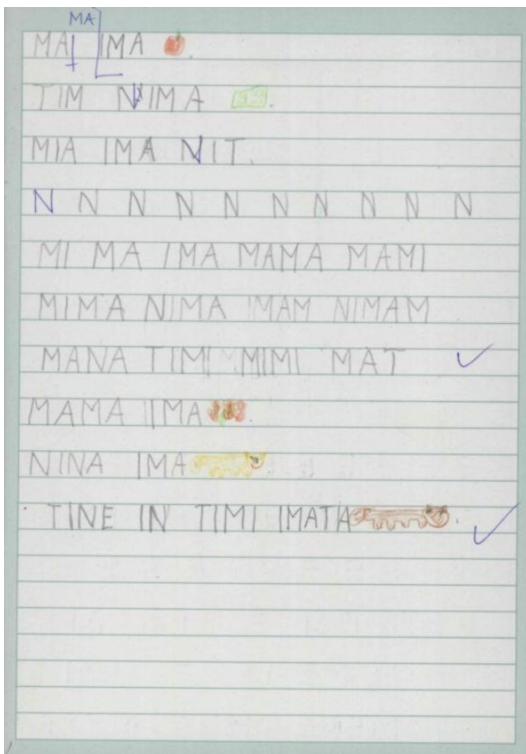 MA
MA IMA .
TIM NIMA .
MIA IMA NIT.
N N N N N N N N N N
MI MA IMA MAMA MAMI
MIMA NIMA IMAM NIMAM
MANA TIMI MIMI MAT
MAMA IMA .
NINA IMA .
TINE IN TIMI IMATA .